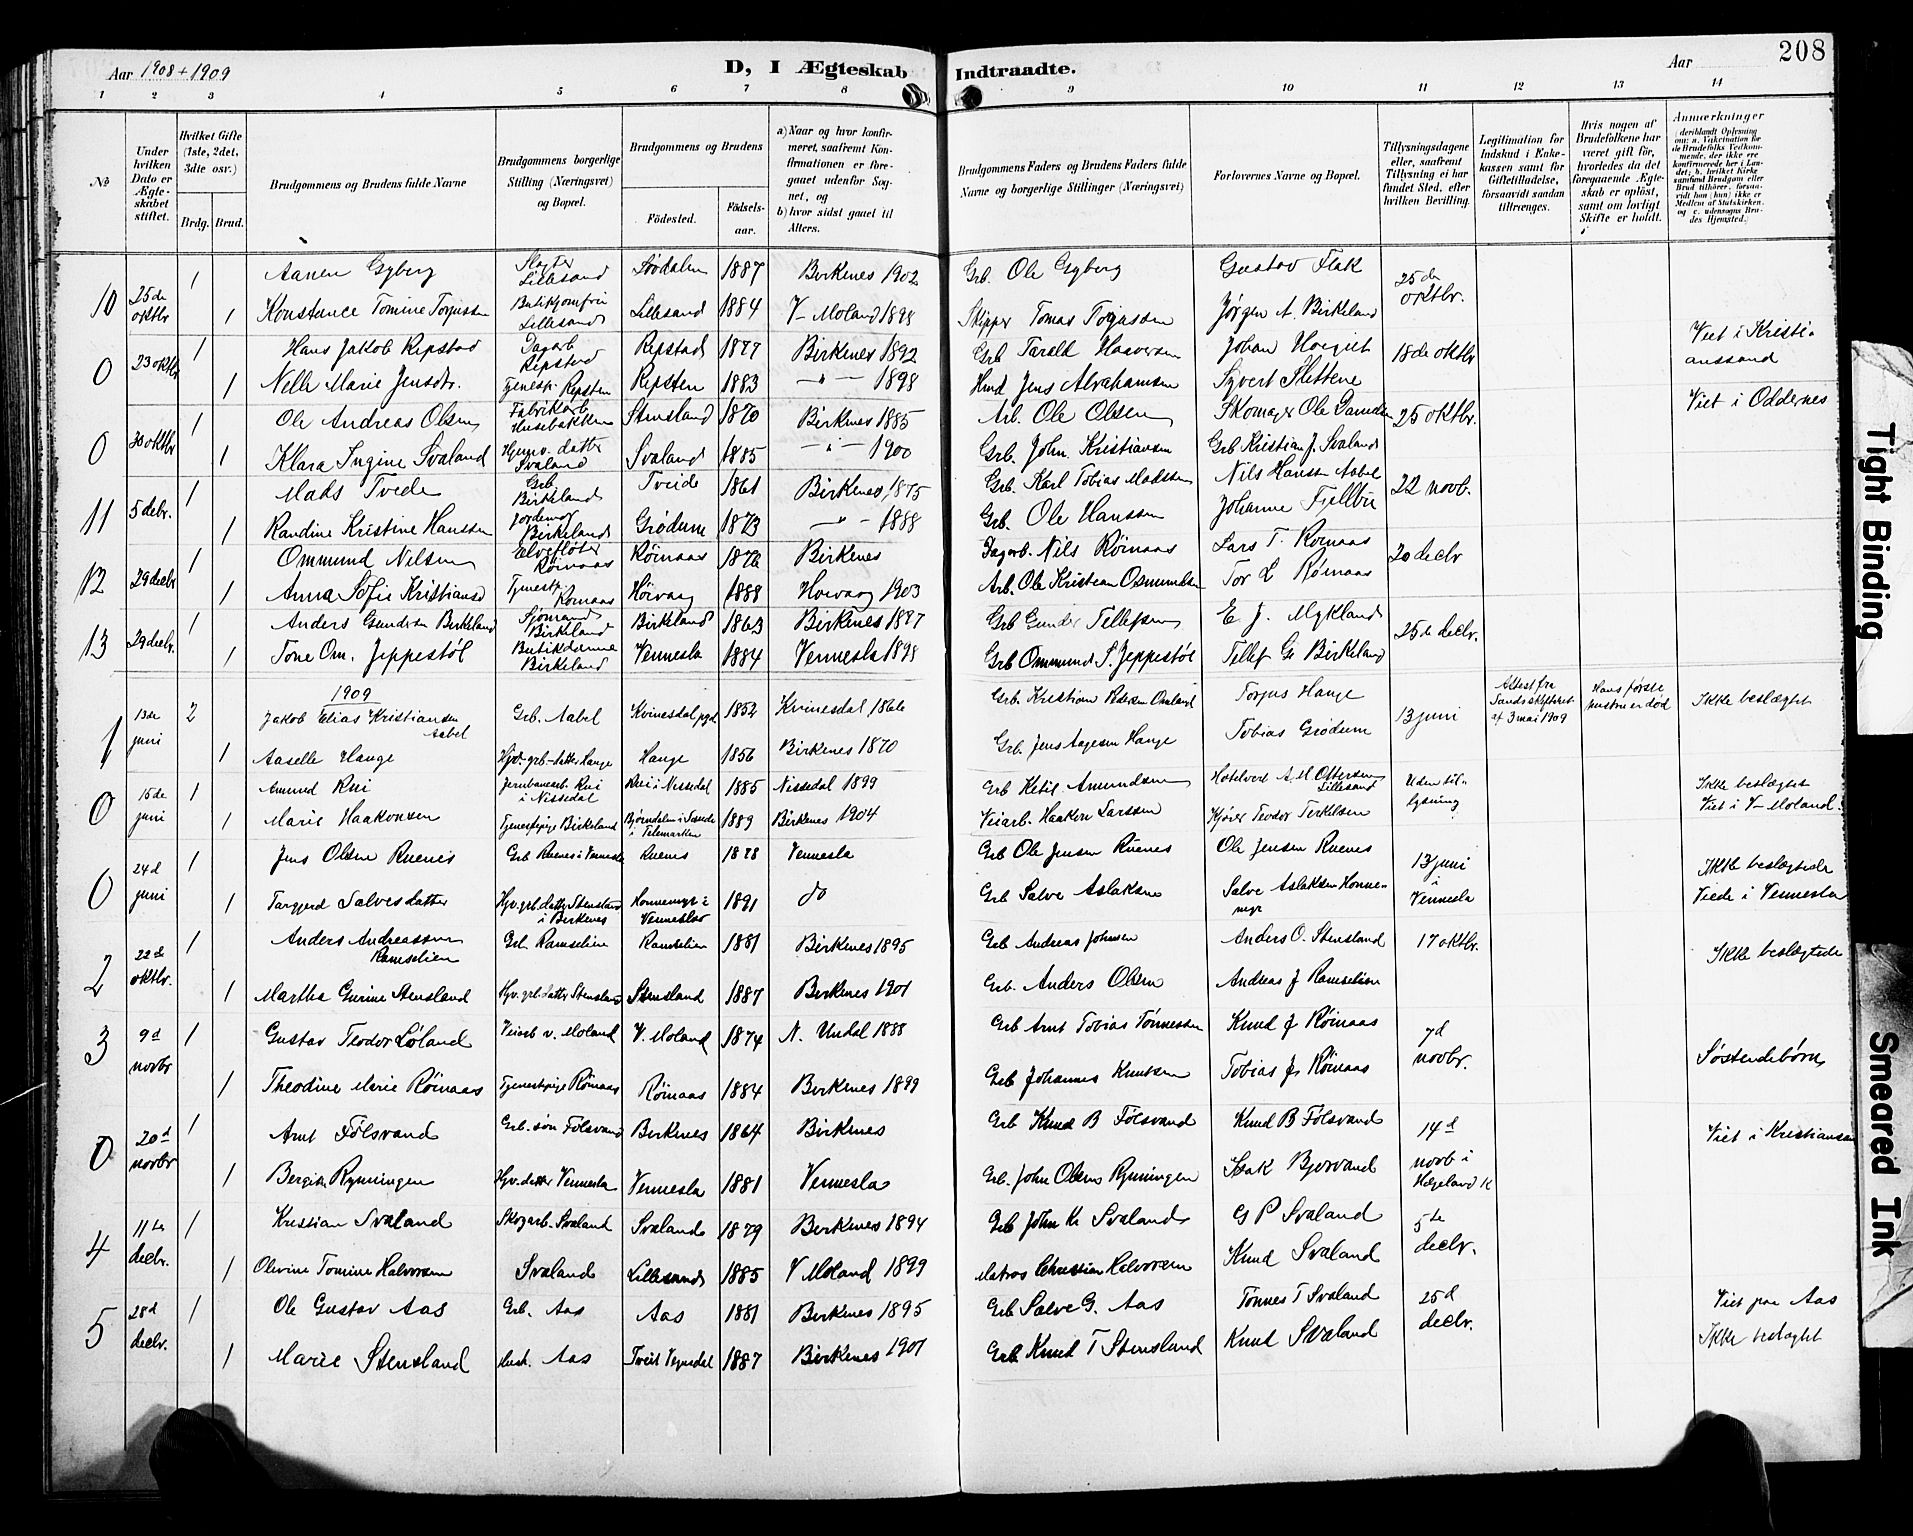 Aar 1908 + 1909
D, I Ægteskab Indtraadte.
Aar
208
1 2 3 4 5 6 7 8 9 10 11 12 13 14
No
Under hvilken Dato er Ægteskabet stiftet.
Hvilket Gifte (1ste, 2det, 3die osv.)
Brdg. Brud.
Brudgommens og Brudens fulde Navne
Brudgommens borgerlige Stilling (Næringsvei) og Bopæl.
Brudgommens og Brudens
Födested.
Födselsaar.
a) Naar og hvor konfirmeret, saafremt Konfirmationen er foregaaet udenfor Sognet, og
b) hvor sidst gaaet til Alters.
Brudgommens Faders og Brudens Faders fulde Navne og borgerlige Stillinger (Næringsvei)
Forlovernes Navne og Bopæl.
Tillysningsdagene eller, saafremt Tillysning ei har fundet Sted, efter hvilken Bevilling.
Legitimation for Indskud i Enkekassen samt for Giftetilladelse, forsaavidt saadan tiltrænges.
Hvis nogen af Brudefolkene har været gift før, hvorledes da det foregaaende Ægteskab er opløst, samt om lovligt Skifte er holdt.
Anmærkninger
(deriblandt Oplysning om: a. Vakcination for de Brudefolks Vedkommende, der ikke ere konfirmerede her i Landet; b. hvilket Kirkesamfund Brudgom eller Brud tilhører, forsaavidt han (hun) ikke er Medlem af Statskirken, og c. udensogns Brudes Hjemsted.)
10 25de oktbr 1 Aanen Gyberg Slagter Lillesand 1887 Birkenes 1902 Grb. Ole Gyberg Gustav Flak 25de oktbr.
1 Konstance Tomine Torjussen Butikjomfru Lillesand Lillesand 1884 V-Moland 1898 Skipper Tomas Jørgen A. Birkeland
0 23 oktbr 1 Hans Jakob Repstad Dagarb Repstad Repstad 1877 Birkenes 1892 Grb Tarald Haaversen Johan 18de oktbr Viet i Kristianssand
1 Nelle Marie Jensdr. Tjenesp. Repsten Repsten 1883 -"- 1898 Hmd Jens Abrahamsen Syvert Slettene
0 30 oktbr 1 Ole Andreas Olsen Fabrikarb Husebakken Stensland 1870 Birkenes 1885 Arb. Ole Olsen Skomager Ole 25 oktbr. Viet i Oddernes
1 Klara Ingine Svaland Hjemv. datter Svaland Svaland 1885 -"- 1900 Grb. John Kristiansen Grb Kristian J. Svaland
11 5 decbr. 1 Mads Tvede Grb. Birkeland Tveide 1861 Birkenes 1875 Grb. Karl Tobias Madsen Nils Hansen Aabel 22 novb.
1 Randine Kristine Hanssen Jordemor Birkeland Grødum 1873 -"- 1888 Grb. Ole Hanssen Johanne Fjellbu
12 29 decbr 1 Ommund Nilsen Elvefløter Römaas Römaas 1876 Birkenes Dagarb. Nils Römaas Lars T. Römaas 20 decbr
1 Anna Sofie Kristiansd Tjenestp. Römaas Höivaag 1888 Höivaag 1903 Arb. Ole Kristian Osmundsen Tor L Römaas
13 29 decbr. 1 Anders Gundersen Birkeland Sjömand Birkeland Birkeland 1863 Birkenes 1877 Grb Gunder Tellefsen E J. Mykland 25de decbr.
1 Tone Om. Jeppestöl Butikdame Birkeland Vennesla 1884 Vennesla 1898 Grb Ommund S. Jeppestöl Tellef G Birkeland
1909
1 13de juni 2 Jakob Elias Kristiansen Aabel Grb. Aabel Kvinesdal pgd 1852 Kvinesdal 1866 Grb. Kristian Pedersen Omland Torjus Hange 13 juni Attest fra Sands skifteret af 3 mai 1909 Hans første hustru er död Ikke beslægtet
1 Aaselle Hange Hjv. grb-datter Hange Hange 1856 Birkenes 1870 Grb. Jens Aagesen Hange Tobias Grödum
0 15de juni 1 Amund Rui Jernbanearb Rui i Nissedal Rui i Nissedal 1885 Nissedal 1899 Grb Ketil Amundsen Hotelvert A. M. Ottersen Lillesand Uden tillysning Ikke beslægtet Viet i V-Moland.
1 Marie Haakonsen Tjenestepige Birkeland Bjørndalen i Telemarken 1889 Birkenes 1904 Veiarb. Haakon Larssen Kjører Teodor Terkelsen
0 24d juni 1 Jens Olsen Ruenes Grb Ruenes i Vennesla Ruenes 1878 Vennesla Grb Ole Jensen Ruenes Ole Jensen Ruenes 13 juni i Vennesla Ikke beslægtede Viede i Vennesla
1 Targjerd Salvesdatter Hjv. grb. datter Stensland i Birkenes Honnemyr i Vennesla 1891 do Grb Salve Aslaksen Salve Aslaksen Honnemyr
2 22de oktbr. 1 Anders Andreassen Ramselien Grb Ramselien Ramselien 1881 Birkenes 1895 Grb Andreas Johnsen Anders O. Stensland 17 oktbr. Ikke beslægtede
1 Martha Gurine Stensland Hjv. grb datter Stensland Stensland 1887 Birkenes 1901 Grb. Anders Olsen Andreas J Ramselien
3 9d novbr 1 Gustav Teodor Löland Veiarb v. Moland V. Moland 1874 N. Undal 1888 Grb Arnt Tobias Tönnessen Knud J Römaas 7d novbr. Söskendebörn
1 Theodine Marie Römaas Tjenestpige Römaas Römaas 1884 Birkenes 1899 Grb Johannes Knutsen Tobias J. Römaas
0 20d novbr 1 Arnt Fölsvand Grb. sön Fölsvand Birkenes 1864 Birkenes Grb Knud B Fölsvand Knud B Fölsvand 14d novb i Hægeland K Viet i Kristiansan
1 Bergite Rynningen Hjv. datter Vennesla Vennesla 1881 Vennesla Grb. John Olsen Rynningen Isak Bjorvand
4 11te decbr. 1 Kristian Svaland Skogarb. Svaland Svaland 1879 Birkenes 1894 Grb John K Svaland G P Svaland 5te decbr.
1 Olevine Tomine Halvorsen Svaland Lillesand 1885 V Moland 1899 Matros Christian Halvorsen Knud Svaland
5 28d decbr. 1 Ole Gustav Aas Grb. Aas Aas 1881 Birkenes 1895 Grb Salve G. Aas Tönnes T Svaland 25d decbr. Viet paa Aas
1 Marie Stensland Hush. Aas Tveit 1887 Birkenes 1901 Grb Knud T Stensland Knud Svaland Ikke beslægtet
Tight Binding
Smeared Ink